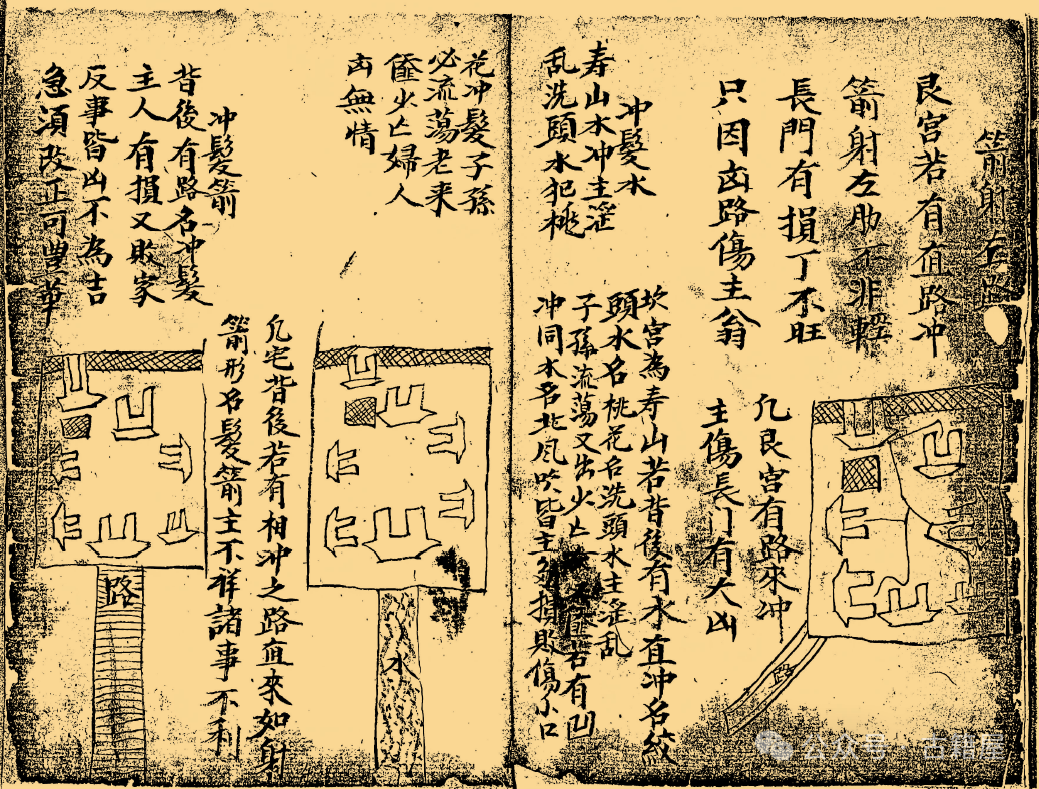 箭射左路
艮宮若有直路冲
箭射左肋不非輕
長門有損丁不旺
只因凶路傷主翁
凢艮宮有路來冲
主傷長门有大凶
路
冲髮水
寿山水冲主滛
乱洗頭水犯桃
花冲髮子孫
必流蕩老来
僱火亡婦人
凶無情
坎宮為寿山若背後有水直冲名紋
頭水名桃花名洗頭水主滛乱
子孫流蕩又出火亡 若有凹
冲同本名北風吹皆主 損敗傷小口
水
冲髮箭
背後有路名冲髮
主人有損又敗家
反事皆凶不為吉
急須改正可豊華
凢宅背後若有相冲之路直來如射
箭形名髮箭主不祥諸事不利
路
公众号·古籍屋